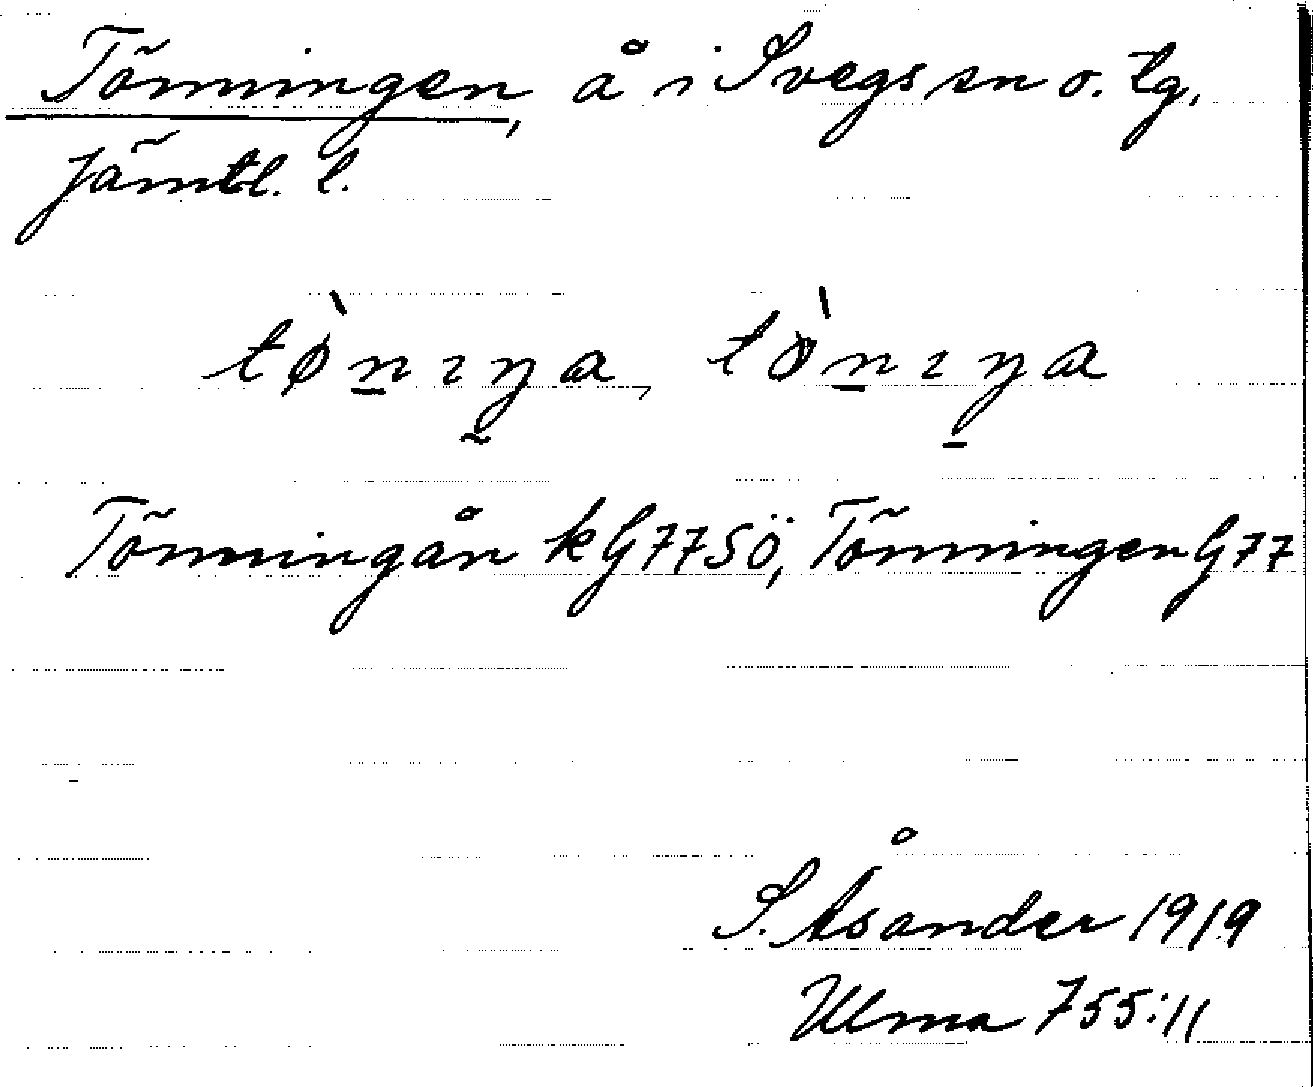 Tönningen, å i Svegs sn o. tg,
Jämtl. l.
tø̀n̲ıŋ̰a, tòn̲ıŋ̲a
Tönningån kG77SÖ, Tönningen G77
S. Åsander 1919
Ulma 755:11